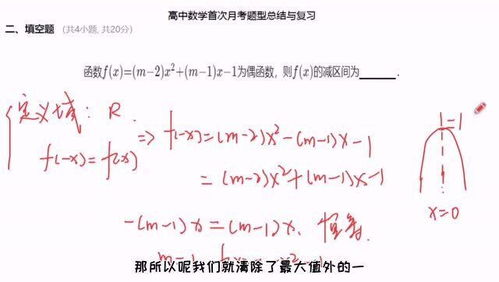 高中数学首次月考题型总结与复习
二、填空题 (共4小题, 共20分)
函数f(x)=(m−2)x²+(m−1)x−1为偶函数，则f(x)的减区间为____.
定义域: R.
f(-x)=f(x)
⇒ f(-x)=(m-2)x²-(m-1)x-1
=(m-2)x²+(m-1)x-1
-(m-1)x=(m-1)x. 恒等.
1=1
x=0
那所以呢我们就清除了最大值外的一